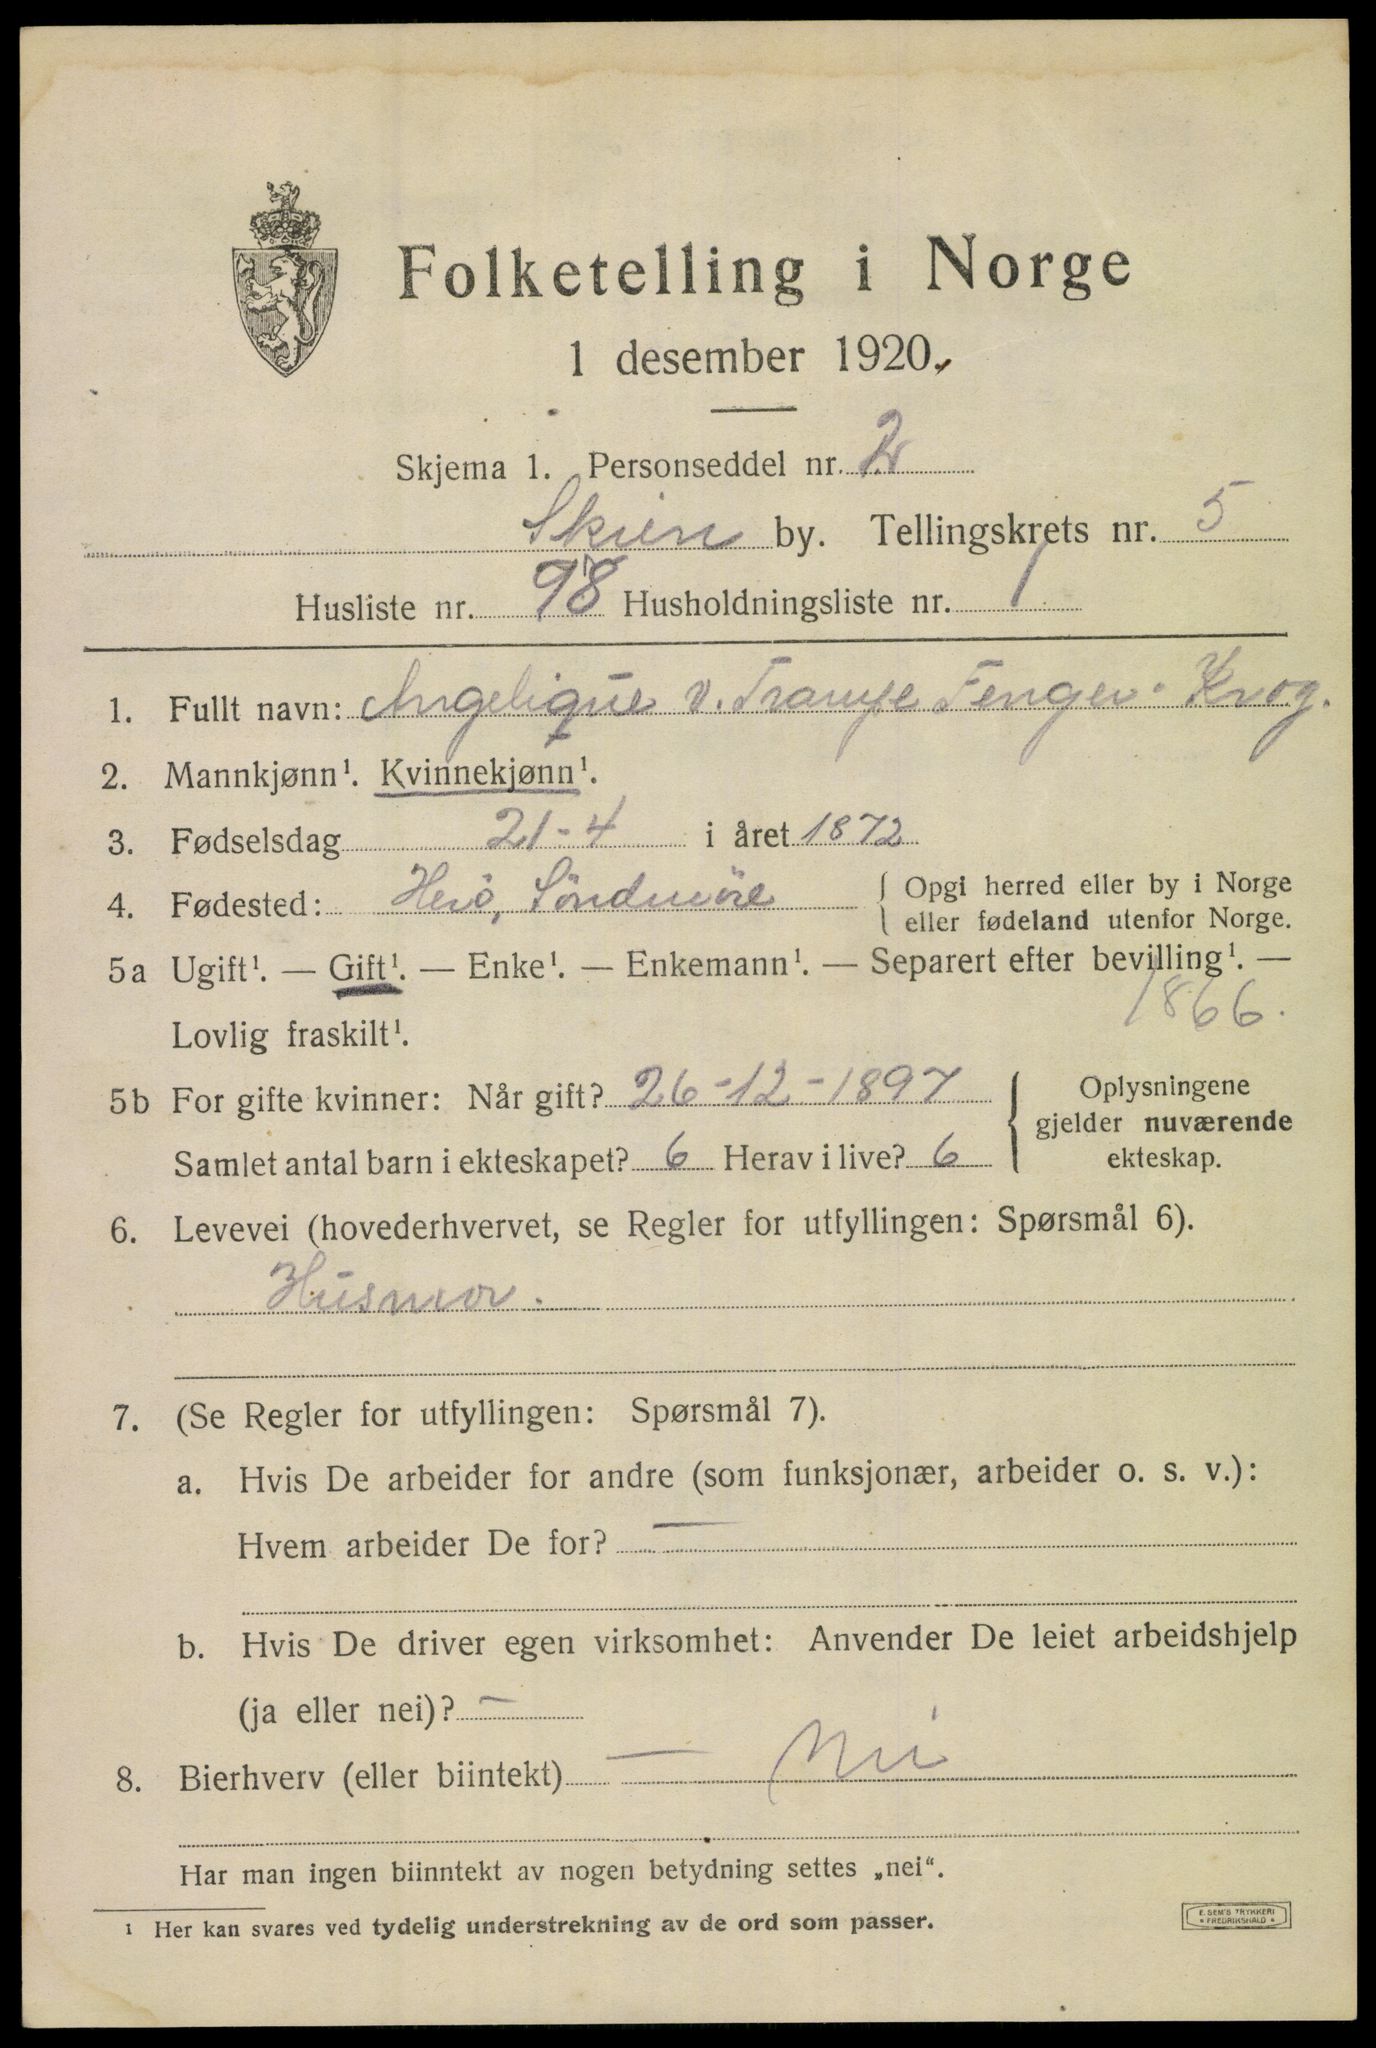 Folketelling i Norge
1 desember 1920.
Skjema 1. Personseddel nr. 2
Skien by. Tellingskrets nr. 5
Husliste nr. 98 Husholdningsliste nr. 1
1. Fullt navn: Angelique v. Trampe Fenger-Krog.
2. Mannkjønn¹. Kvinnekjønn¹.
3. Fødselsdag 21-4 i året 1872
4. Fødested: Herö, Söndmöre { Opgi herred eller by i Norge
eller fødeland utenfor Norge.
5a Ugift¹. — Gift¹. — Enke¹. — Enkemann¹. — Separert efter bevilling¹. —
Lovlig fraskilt¹. 1866.
5b For gifte kvinner: Når gift? 26-12-1897
Samlet antal barn i ekteskapet? 6 Herav i live? 6
Oplysningene
gjelder nuværende
ekteskap.
6. Levevei (hovederhvervet, se Regler for utfyllingen: Spørsmål 6).
Husmor.
7. (Se Regler for utfyllingen: Spørsmål 7).
a. Hvis De arbeider for andre (som funksjonær, arbeider o. s. v.):
Hvem arbeider De for? —
b. Hvis De driver egen virksomhet: Anvender De leiet arbeidshjelp
(ja eller nei)? —
8. Bierhverv (eller biintekt) — Nei
Har man ingen biinntekt av nogen betydning settes „nei“.
¹ Her kan svares ved tydelig understrekning av de ord som passer.
E. SEM'S TRYKKERI
FREDRIKSHALD